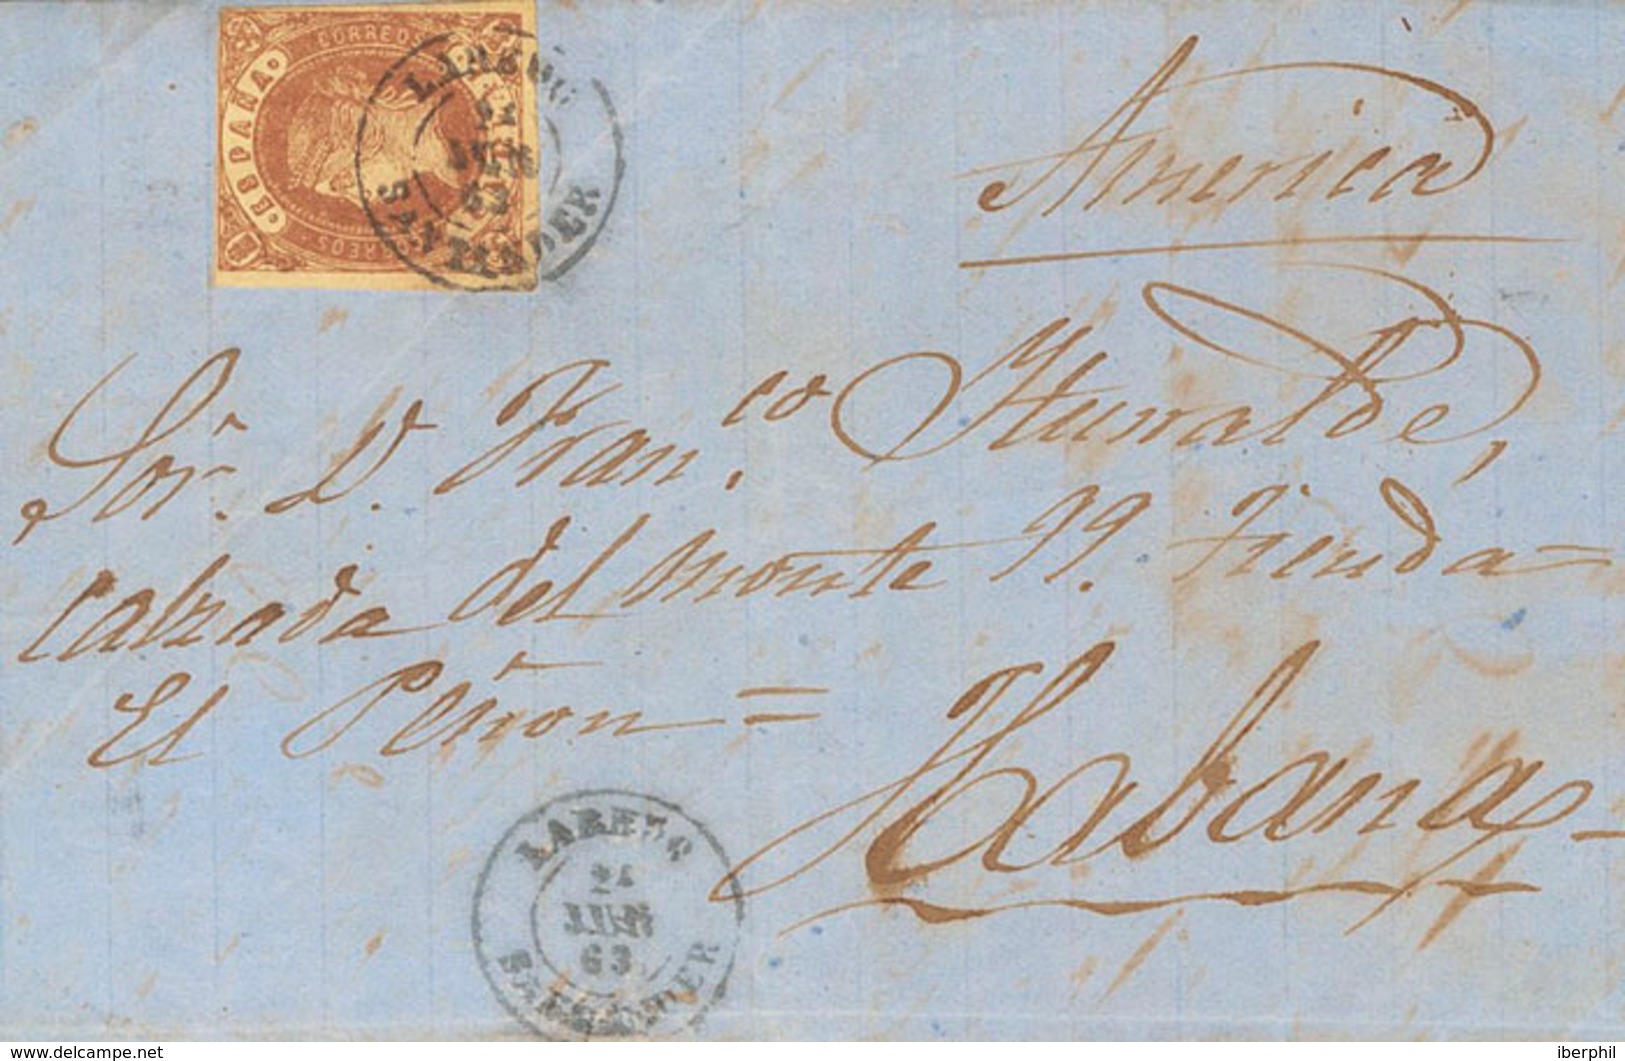 CORREOS
ESPAÑA
CORREOS
LAREDO
JUN
63
SANTANDER
America
Sor. D. Fran.co Yturralde,
Calzada del Monte 99. Tienda=
El Peñon =
Habana
LAREDO
JUN
63
SANTANDER
www.delcampe.net
iberphil